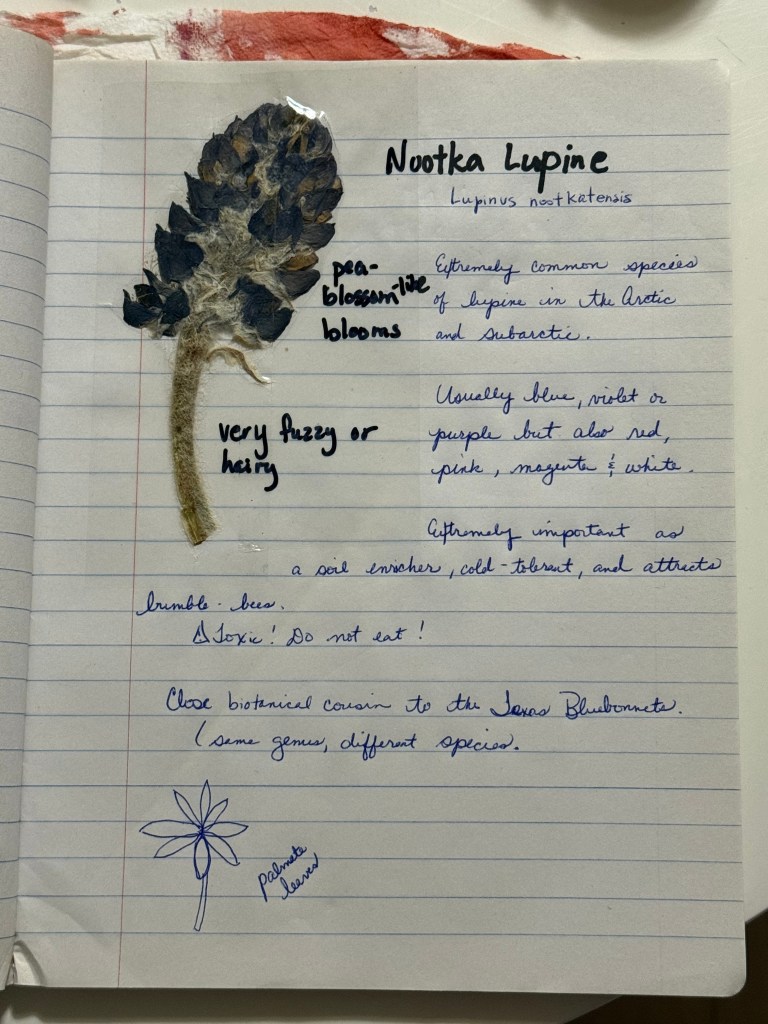 Nootka Lupine
Lupinus nootkatensis
pea-
blossom-like
blooms
Extremely common species
of lupine in the Arctic
and subarctic.
very fuzzy or
hairy
Usually blue, violet or
purple but also red,
pink, magenta & white.
Extremely important as
a soil enricher, cold-tolerant, and attracts
bumble-bees.
⚠ Toxic! Do not eat!
Close biotanical cousin to the Texas Bluebonnets.
(same genus, different species.
Palmate
leaves